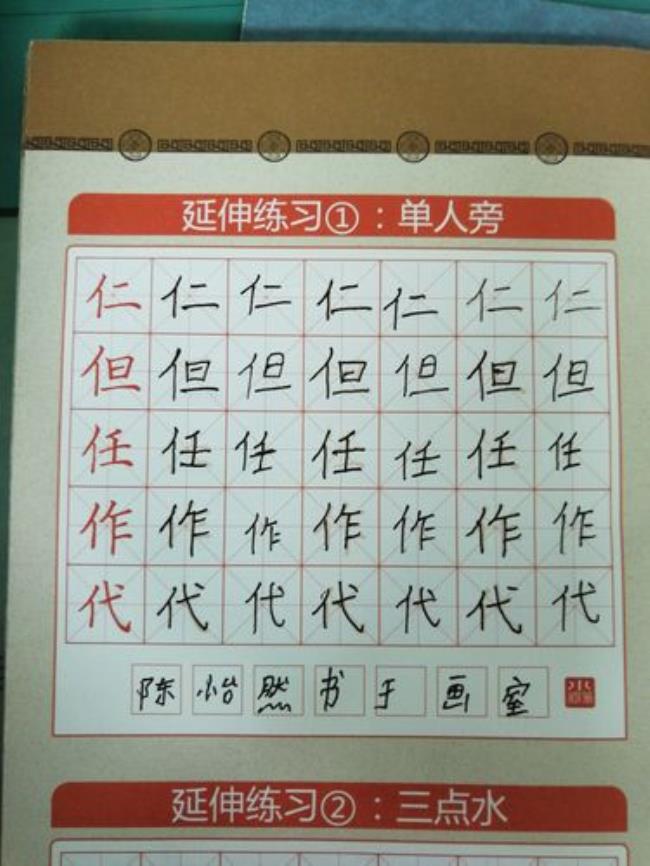 延伸练习①：单人旁
仁仁仁仁仁仁仁
但但但但但但但
任任任任任任任
作作作作作作作
代代代代代代代
陈怡然书于画室
延伸练习②：三点水